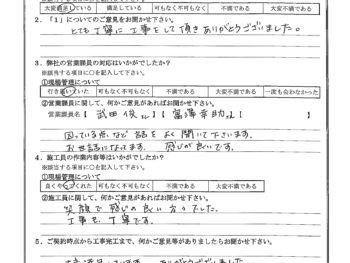 大変満足している 満足している 可もなく不可もなく 不満である 大変不満である
2．「1」についてのご意見をお聞かせ下さい。
とても丁寧に工事をして頂きありがとうございました。
3．弊社の営業課員の対応はいかがでしたか？
※該当する項目に○を記入して下さい。
①現場管理について
行き届いていた 可もなく不可もなく 不満である 大変不満である 一度も会わなかった
②営業課員に関して、何かご意見があればお聞かせ下さい。
営業課員名【 武田 俊 さん】【 富澤幸助さん】
困っている点など話をよく聞いて下さいます。
お世話になってます。 感じが良いです。
4．施工員の作業内容等はいかがでしたか？
※該当する項目に○を記入して下さい。
①現場管理について
良くやってくれた 可もなく不可もなく 不満である 大変不満である
②施工員に関して、何かご意見があればお聞かせ下さい。
笑顔で感じの良い方々でした。
工事も丁寧です。
5．ご契約時点から工事完工まで、何かご意見等がありましたらお聞かせ下さい。
ありがとうございました